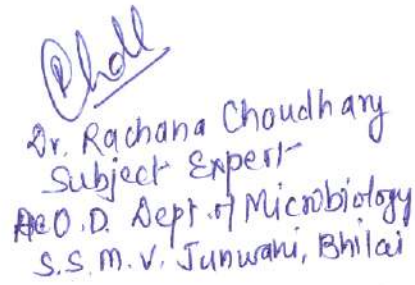 Dr. Rachana Choudhary
Subject Expert
H.O.D. Dept. of Microbiology
S.S.M.V. Junwani, Bhilai